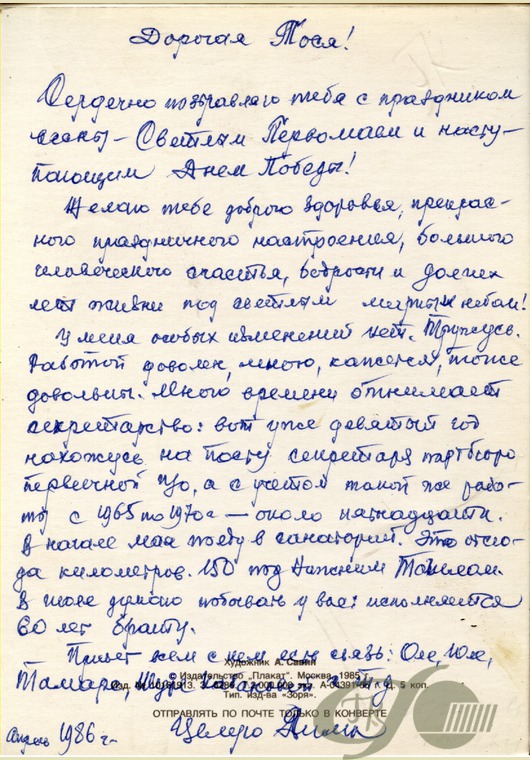 Дорогая Тося!
Сердечно поздравляю тебя с праздником
весны – Светлым Первомаем и насту-
пающим Днем Победы!
Желаю тебе доброго здоровья, прекрас-
ного праздничного настроения, большого
человеческого счастья, бодрости и долгих
лет жизни под светлым мирным небом!
У меня особых изменений нет. Тружусь.
Работой доволен, мною, кажется, тоже
довольны. Много времени отнимает
секретарство: вот уже девятый год
нахожусь на посту секретаря партбюро
первичной п/о, а с учётом такой же рабо-
ты с 1965 по 1970 г – около пятнадцати.
В начале мая поеду в санаторий. Это отсю-
да километров 150 под Нижним Тагилом.
В июне думаю побывать у вас: исполняется
60 лет брату.
Привет всем с кем есть связь: Оле, Юле,
Тамаре
Художник А. Савин
© Издательство „Плакат". Москва 1985
5 коп.
Тип. изд-ва «Зоря».
ОТПРАВЛЯТЬ ПО ПОЧТЕ ТОЛЬКО В КОНВЕРТЕ
Целую
Апрель 1986 г.